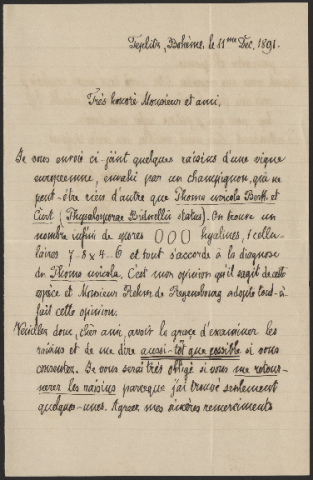 Teplitz, Bohême, le 11me Déc. 1891.
Très honoré Monsieur et ami,
Je vous envoie ci-joint quelques raisins d'une vigne
européenne, envahi par un champignon, qui ne
peut-être rien d'autre que Phoma uvicola Berk. et
Curt. (Physalosporae Bidwellii status). On trouve un
nombre infini de spores 000 hyalines, 1 cellu-
laires 7-8 x 4-6 et tout s'accorde à la diagnose
du Phoma uvicola. C'est mon opinion qu'il s'agit de cette
espèce et Monsieur Rehm de Regensbourg adopte tout-à-
fait cette opinion.
Veuillez donc, cher ami, avoir la grace d'examiner les
raisins et de me dire aussi-tôt que possible si vous
consentez. Je vous serai très obligé si vous me retour-
nerez les raisins parceque j'ai trouvé seulement
quelques-unes. Agréez mes sincères remerciments